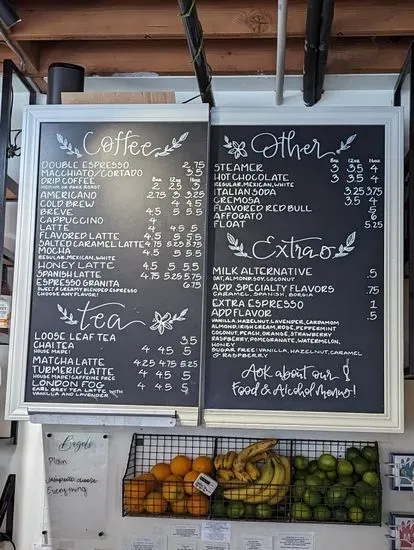 Coffee
8oz 12oz 16oz
DOUBLE ESPRESSO 2.75
MACCHIATO/CORTADO 3.5
DRIP COFFEE 2 2.5 3
MEDIUM OR DARK ROAST
AMERICANO 2.75 3 3.25
COLD BREW 4 4.5
BREVE 4.5 5 5.5
CAPPUCCINO 4
LATTE 4 4.5 5
FLAVORED LATTE 4.5 5 5.5
SALTED CARAMEL LATTE 4.75 5.25 5.75
MOCHA 4.5 5 5.5
REGULAR, MEXICAN, WHITE
HONEY LATTE 4.5 5 5.5
SPANISH LATTE 4.75 5.25 5.75
ESPRESSO GRANITA 6.75
SWEET & CREAMY BLENDED ESPRESSO
CHOOSE ANY FLAVOR!
tea
LOOSE LEAF TEA 3.5
CHAI TEA 4 4.5 5
HOUSE MADE!
MATCHA LATTE 4.25 4.75 5.25
TURMERIC LATTE 4 4.5 5
HOUSE MADE! CAFFEINE FREE
LONDON FOG 4 4.5 5
EARL GREY TEA LATTE WITH
VANILLA AND LAVENDER
Other
8oz 12oz 16oz
STEAMER 3 3.5 4
HOT CHOCOLATE 3 3.5 4
REGULAR, MEXICAN, WHITE
ITALIAN SODA 3.25 3.75
CREMOSA 3.5 4
FLAVORED RED BULL 5
AFFOGATO 6
FLOAT 5.25
Extras
MILK ALTERNATIVE .5
OAT, ALMOND, SOY, COCONUT
ADD SPECIALTY FLAVORS .75
CARAMEL, SPANISH, BORGIA
EXTRA ESPRESSO 1
ADD FLAVOR .5
VANILLA, HAZELNUT, LAVENDER, CARDAMOM
ALMOND, IRISH CREAM, ROSE, PEPPERMINT
COCONUT, PEACH, ORANGE, STRAWBERRY
RASPBERRY, POMEGRANATE, WATERMELON,
HONEY
SUGAR FREE: VANILLA, HAZELNUT, CARAMEL
& RASPBERRY
Ask about our
Food & Alcohol menu!
Bagels
Plain
Jalapeno cheese
Everything